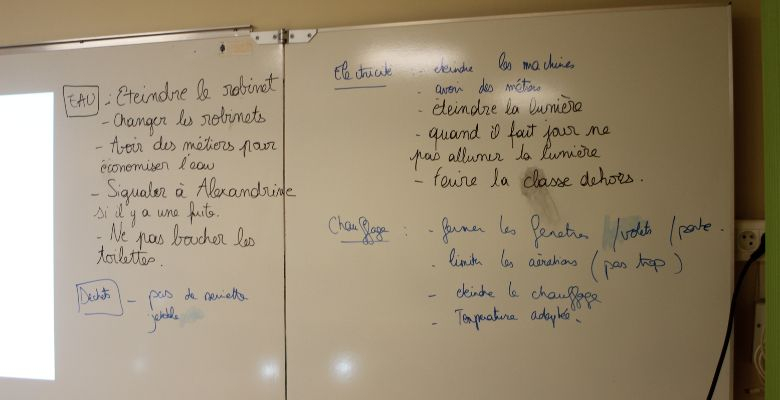 EAU : Eteindre le robinet
- Changer les robinets
- Avoir des métiers pour
économiser l'eau
- Signaler à Alexandrine
si il y a une fuite.
- Ne pas boucher les
toilettes.
Déchets - pas de serviette
jetable
Electricité : - éteindre les machines
- avoir des métiers
- éteindre la lumière
- quand il fait jour ne
pas allumer la lumière
- Faire la classe dehors.
Chauffage : - fermer les fenetres /volets / porte.
- limiter les aérations (pas trop)
- eteindre le chauffage
- Température adaptée.